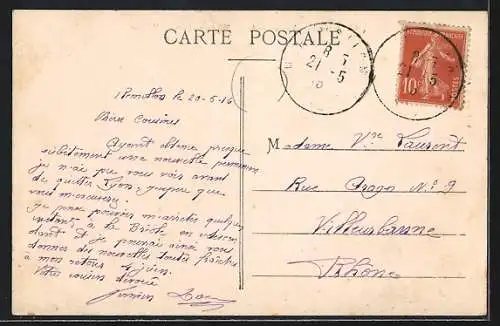 CARTE POSTALE
8 - 7
21 - 5
RÉPUBLIQUE FRANÇAISE
10
POSTES
le 20-5-16
Chère Cousine
Ayant obtenu presque
subitement une nouvelle permission
je n'ai pu vous voir avant
de quitter Lyon; j'espère que
vous m'excuserez.
Je pense pouvoir m'arrêter quelques
instants à la
dant et je pourrai ainsi vous
donner des nouvelles toutes fraîches
à mon retour
Votre cousin dévoué
Madame Vve Laurent
Rue Arago N° 9
Villeurbanne
Rhône